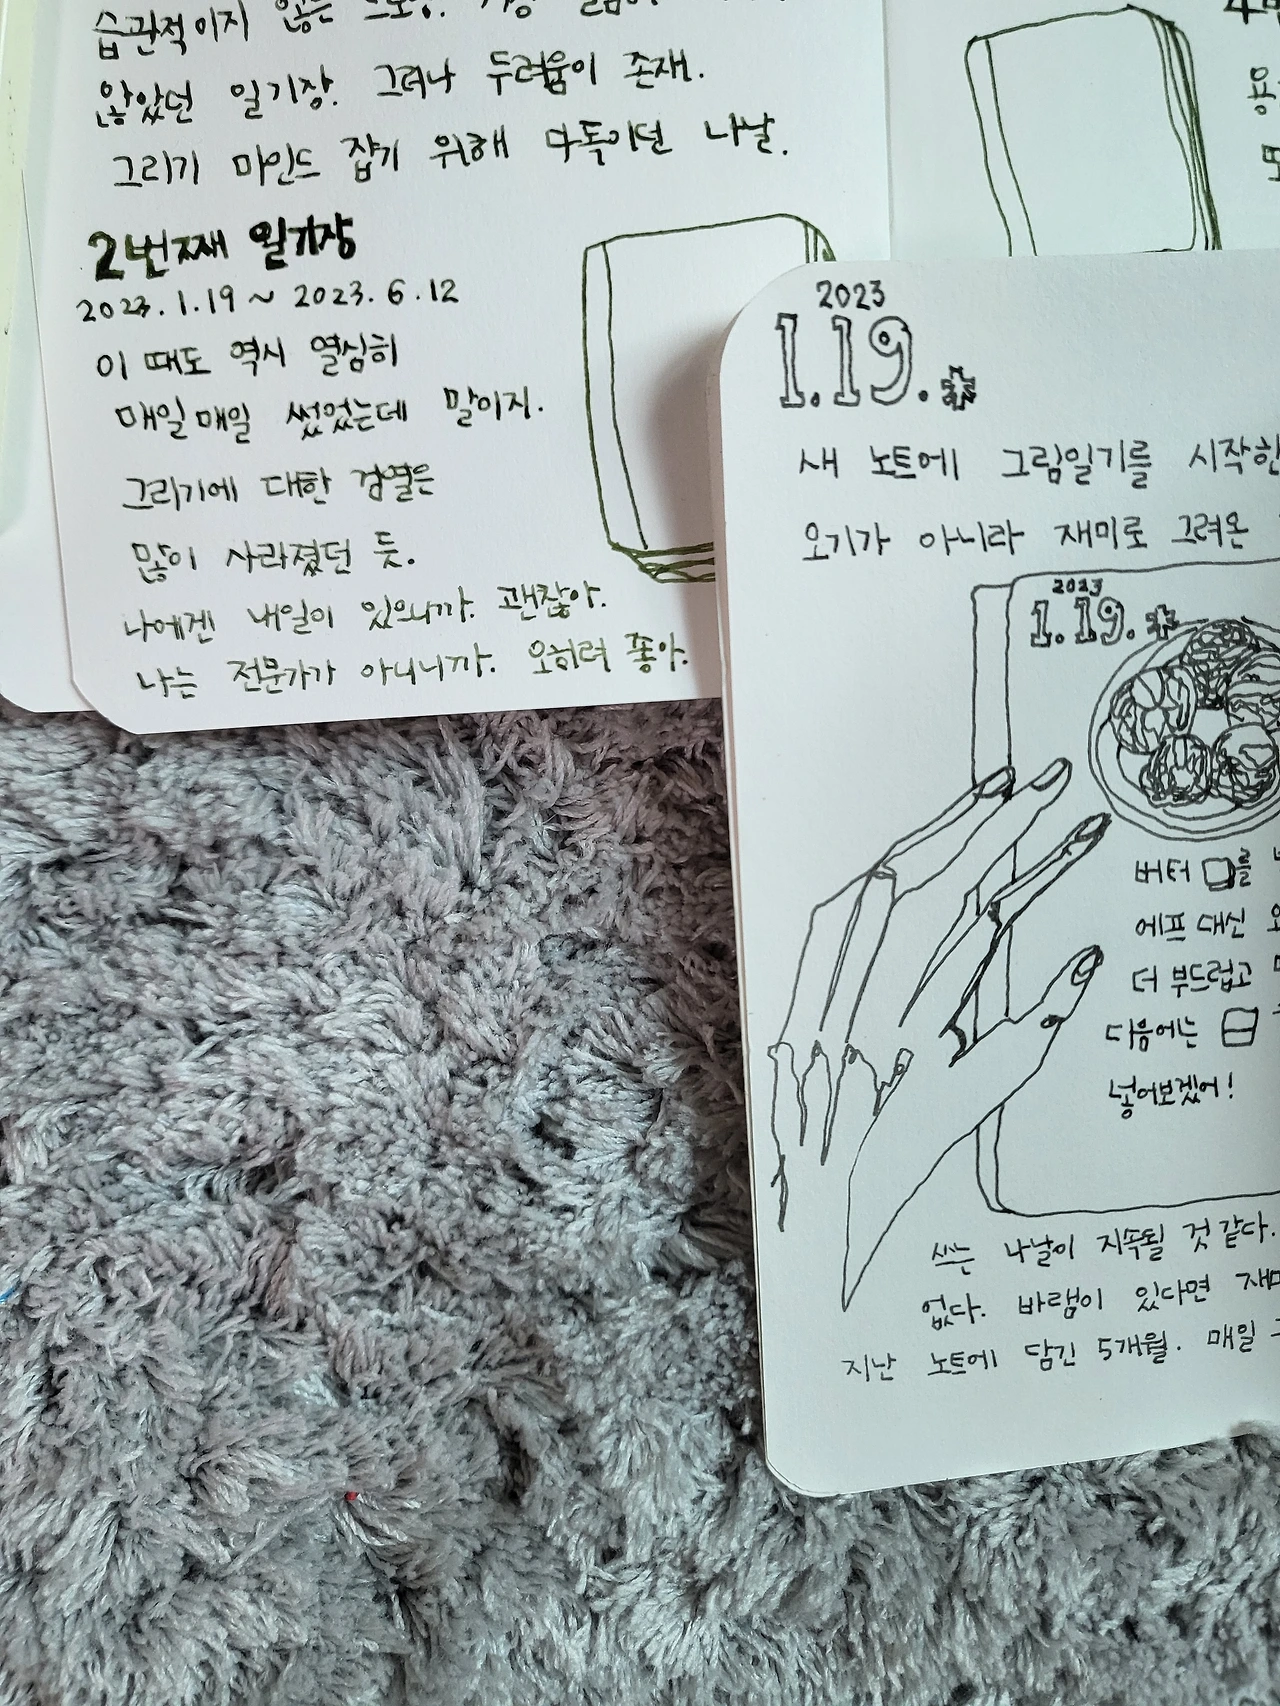 습관적이지 않은
않았던 일기장. 그러나 두려움이 존재.
그리기 마인드 잡기 위해 다독이던 나날.
2번째 일기장
2023.1.19 ~ 2023.6.12
이 때도 역시 열심히
매일매일 썼었는데 말이지.
그리기에 대한 검열은
많이 사라졌던 듯.
나에겐 내일이 있으니까. 괜찮아.
나는 전문가가 아니니까. 오히려 좋아.
2023
1.19.
새 노트에 그림일기를 시작한
오기가 아니라 재미로 그려온
2023
1.19.
버터 를
에프 대신
더 부드럽고
다음에는
넣어보겠어!
쓰는 나날이 지속될 것 같다.
없다. 바램이 있다면
지난 노트에 담긴 5개월. 매일